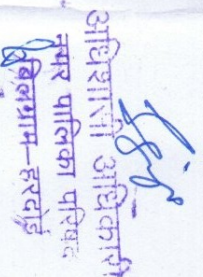 अधिशासी अधिकारी
नगर पालिका परिषद
बिलग्राम-हरदोई